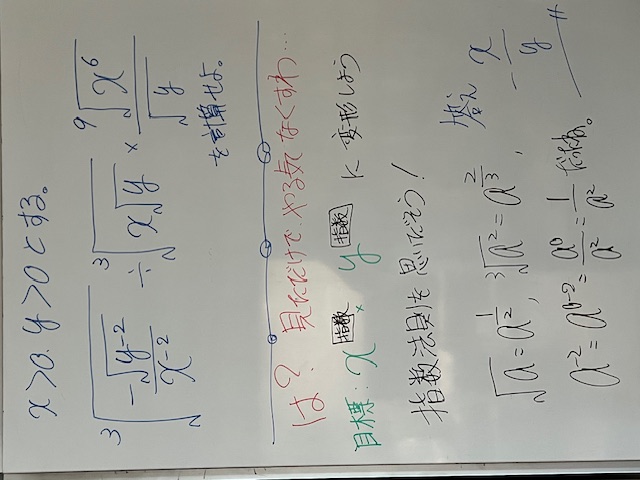 x>0. y>0とする。
∛(-√(y⁻²)/x⁻²) ÷ ∛(x√y) × ⁹√(x⁶)/√y
を計算せよ。
は？見ただけでやる気なくすわ...
目標: x^[指数] × y^[指数] に変形しよう
指数法則を思いだそう！
√a = a^(1/2), ∛(a²) = a^(2/3),
a⁻² = a^(0-2) = a⁰/a² = 1/a² だよね。
答え -x/y 〃